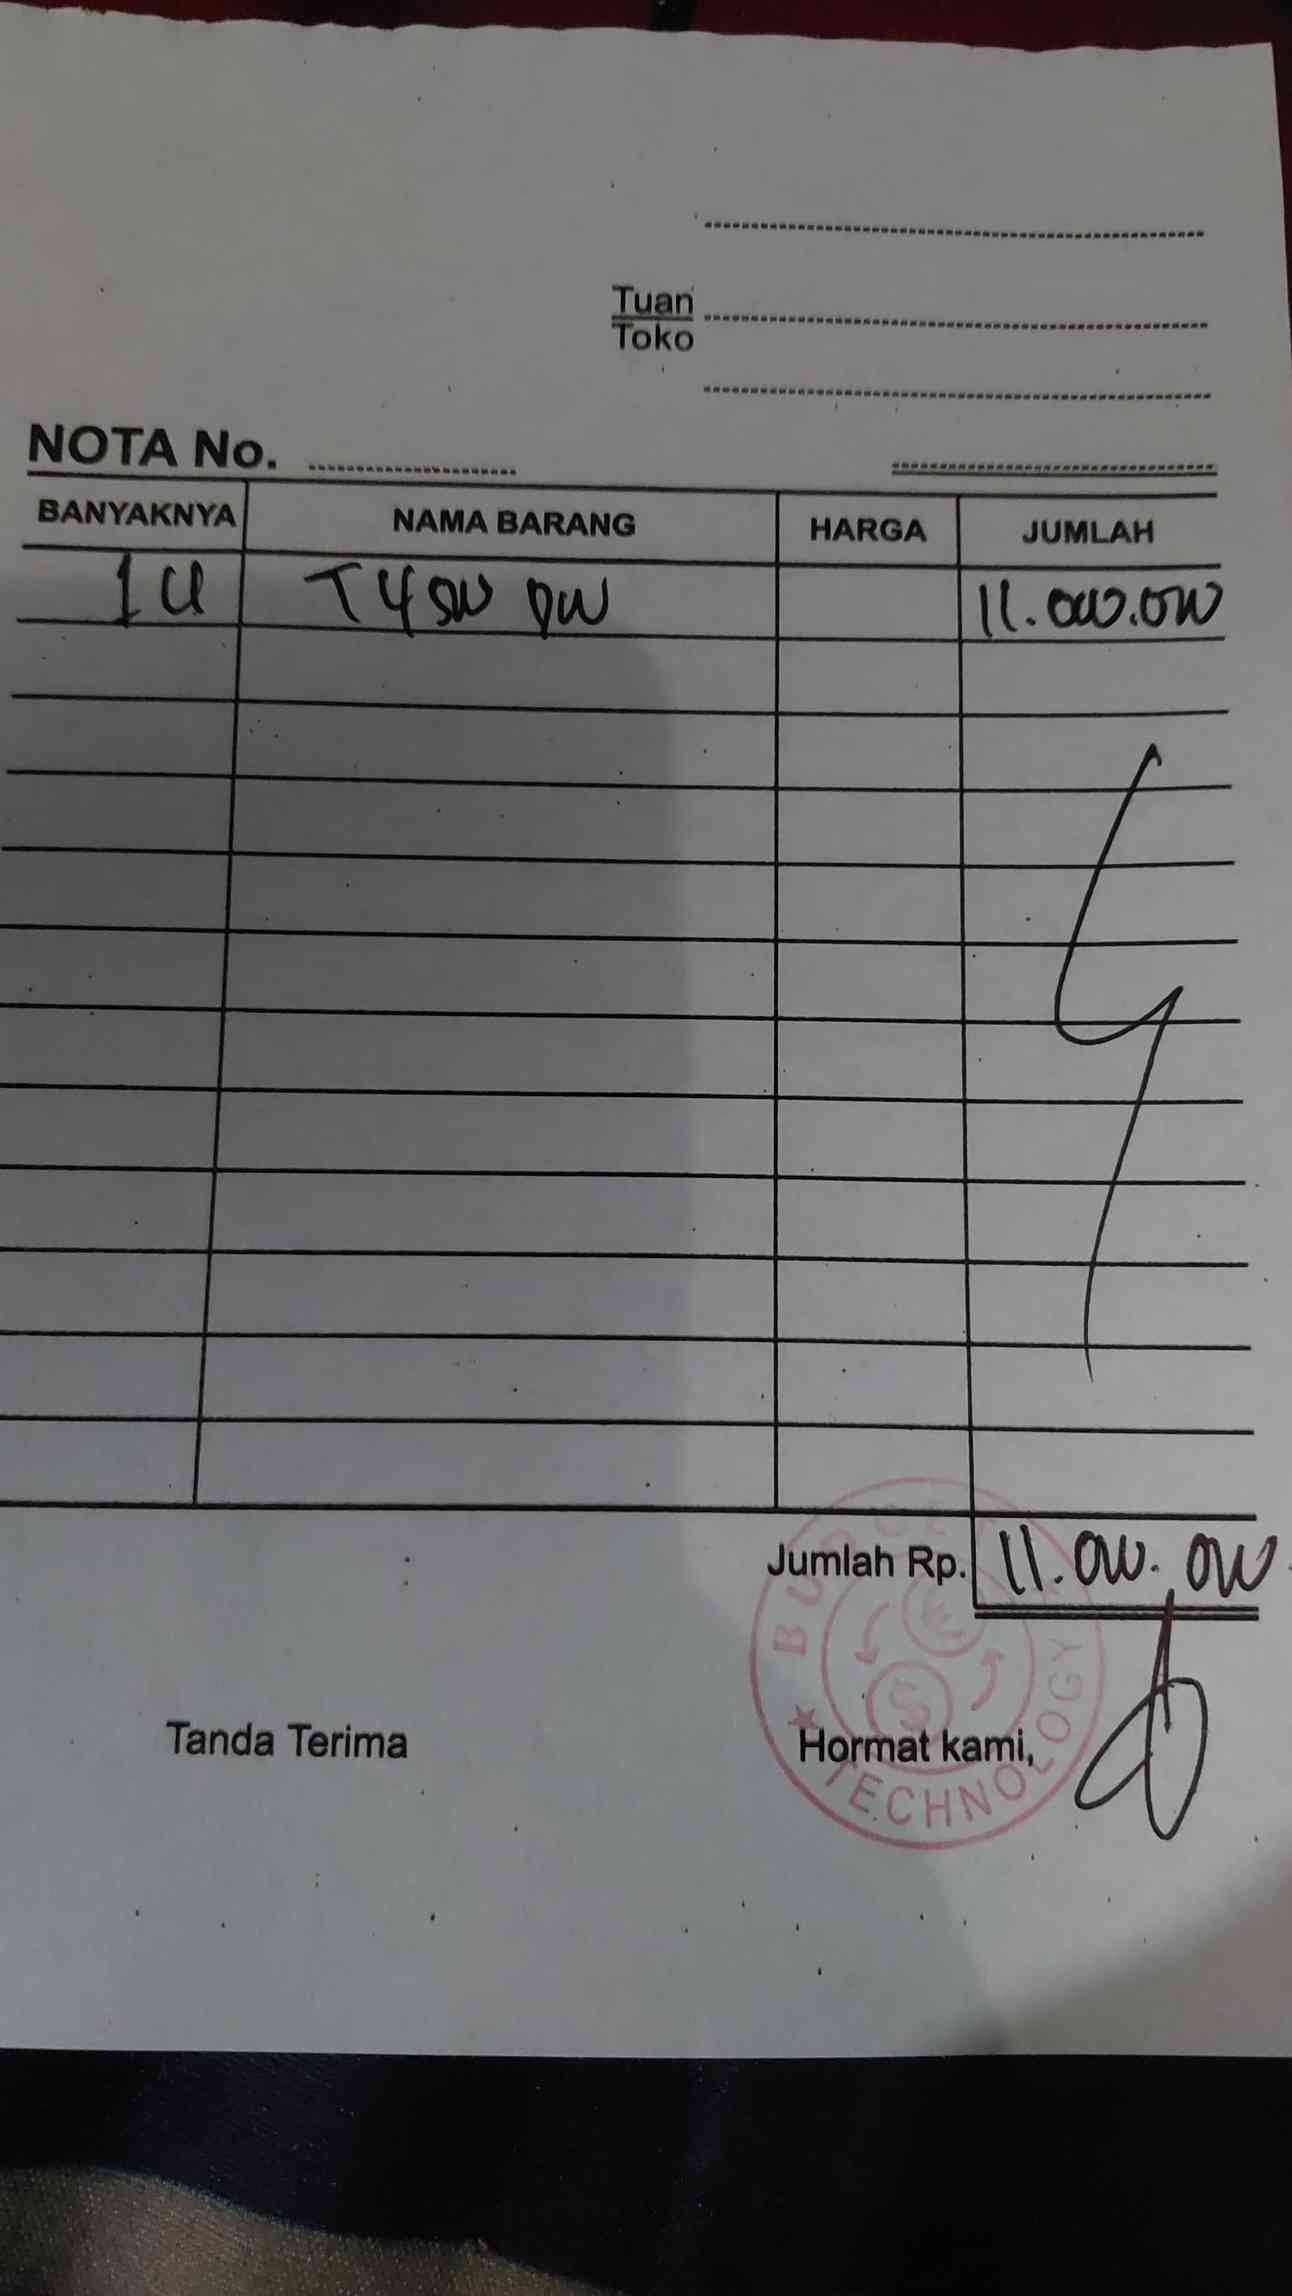 Tuan
Toko
NOTA No.
BANYAKNYA NAMA BARANG HARGA JUMLAH
1 U 11.000.000
Jumlah Rp. 11.000.000
Tanda Terima Hormat kami,
TECHNOLOGY